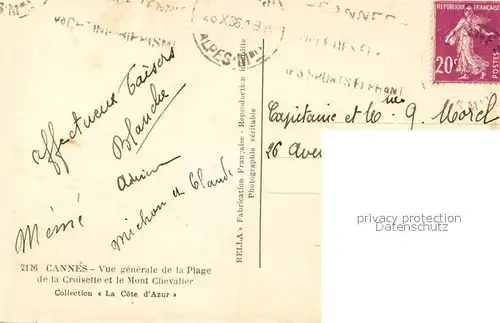 CANNES
26.X.36
ALPES-Mmes
REPUBLIQUE FRANÇAISE
20c
POSTES
Affectueux baisers
Blanche
Adrien
Michou et Claude
Mémé
Capitaine et Mme G. Morel
26 Ave
privacy protection
Datenschutz
RELLA » Fabrication Française - Reproduction interdite
Photographie véritable
2126 CANNES - Vue générale de la Plage
de la Croisette et le Mont Chevalier
Collection « La Côte d'Azur »